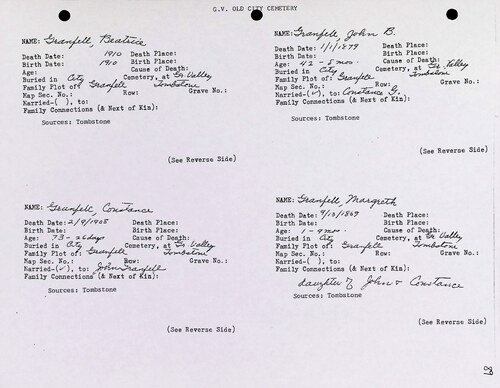 G.V. OLD CITY CEMETERY
NAME: Granfell, Beatrice
Death Date: 1910 Death Place:
Birth Date: 1910 Birth Place:
Age: Cause of Death:
Buried in City Cemetery, at Gr. Valley
Family Plot of: Granfell Tombstone
Map Sec. No.: Row: Grave No.:
Married-( ), to:
Family Connections (& Next of Kin):
Sources: Tombstone
(See Reverse Side)
NAME: Granfell John B.
Death Date: 1/1/1879 Death Place:
Birth Date: Birth Place:
Age: 42 - 5 mos. Cause of Death:
Buried in City Cemetery, at Gr. Valley
Family Plot of: Granfell Tombstone
Map Sec. No.: Row: Grave No.:
Married-(✓), to: Constance G.
Family Connections (& Next of Kin):
Sources: Tombstone
(See Reverse Side)
NAME: Granfell, Constance
Death Date: 2/9/1908 Death Place:
Birth Date: Birth Place:
Age: 73 - 26 days Cause of Death:
Buried in City Cemetery, at Gr. Valley
Family Plot of: Granfell Tombstone
Map Sec. No.: Row: Grave No.:
Married-(✓), to: John Granfell
Family Connections (& Next of Kin):
Sources: Tombstone
(See Reverse Side)
NAME: Granfell, Margreth
Death Date: 9/13/1869 Death Place:
Birth Date: Birth Place:
Age: 1 - 9 mos. Cause of Death:
Buried in City Cemetery, at Gr. Valley
Family Plot of: Granfell Tombstone
Map Sec. No.: Row: Grave No.:
Married-( ), to:
Family Connections (& Next of Kin):
daughter of John & Constance
Sources: Tombstone
(See Reverse Side)